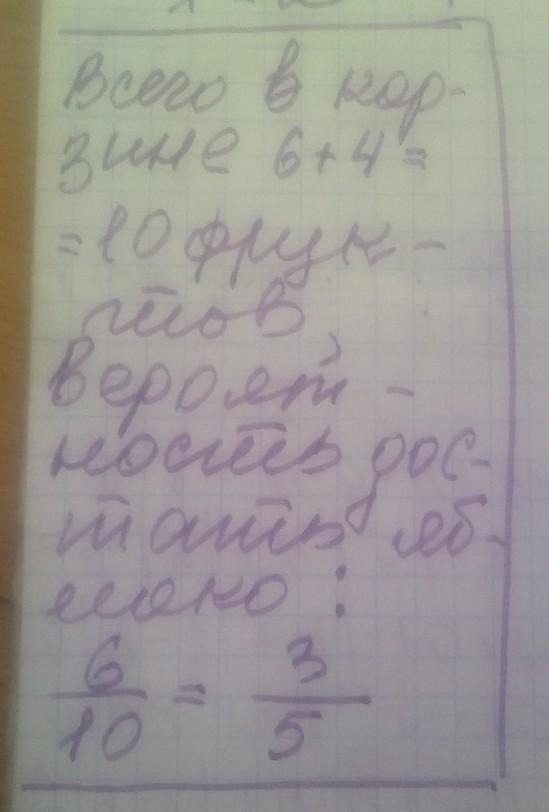 Всего в кор-
зине 6+4=
=10 фрук-
тов,
вероят-
ность дос-
тать яб-
локо:
6/10 = 3/5